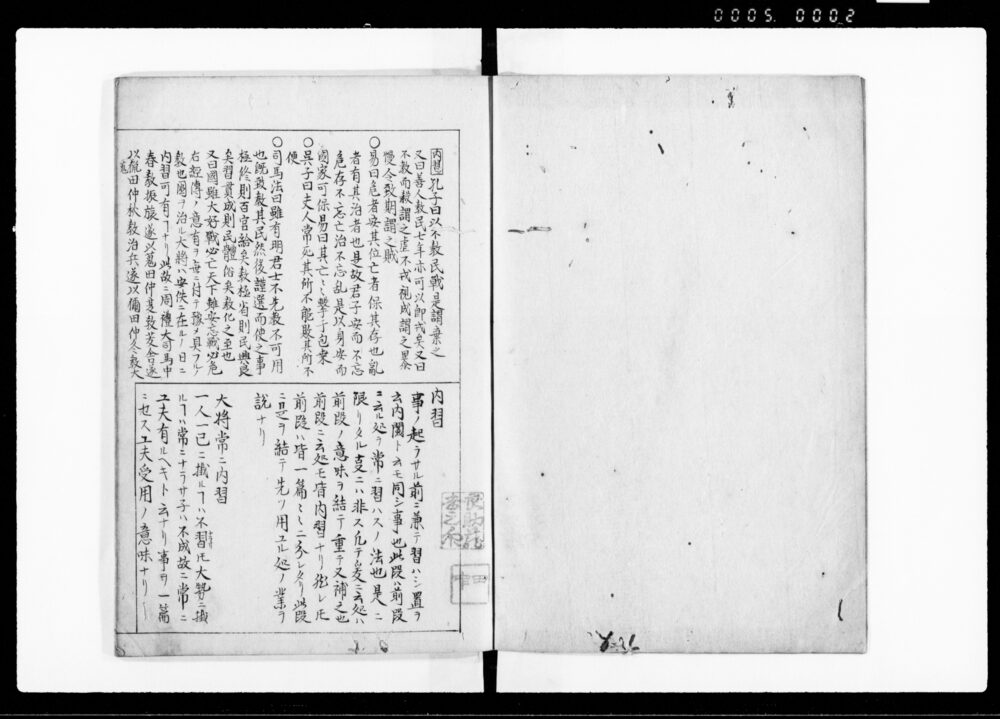 0005.0002
内習 孔子曰以不敎民戰是謂棄之
又曰善人敎民七年亦可以即戎矣又曰
不敎而殺謂之虐不戒視成謂之暴
慢令致期謂之賊
〇易曰危者安其位亡者保其存也亂
者有其治者也是故君子安而不忘
危存不忘亡治不忘乱是以身安而
國家可保易曰其亡〻繋于包桒
〇吳子曰夫人常死其所不能敗其所不
便
〇司馬法曰雖有明君士不先敎不可用
也既致敎其民然後謹選而使之事
極修則百官給矣敎極省則民興良
矣習貫成則民體俗矣敎化之至也
又曰國雖大好戰必亡天下雖安忘戰必危
右經傳ノ意有ヲ無ニ付テ豫メ具フルノ
敎也國ヲ治ル大將ハ安佚ニ在ルノ日ニ
内習可有コナリ此故ニ周禮大司馬中
春敎振旅遂以蒐田仲夏敎茇舎遂
以苗田仲秋敎治兵遂以獮田仲冬敎大
内習
事ノ起ラサル前ニ兼テ習ハシ置ヲ
云内閲ト云モ同シ事也此段ハ前段
ニ云ル処ヲ常ニ習ハスノ法也是ハニ
限リタル叓ニハ非ス凡テ爰ニ云処ハ
前段ノ意味ヲ結テ重テ又補之也
前段ニ云処モ皆内習ナリ然レ𪜈
前段ハ皆一篇〻〻ニ分レタリ此段
ニ是ヲ結テ先ツ用ユル処ノ業ヲ
説ナリ
大將常ニ内習
一人一己ニ撒ルヿハ不習𪜈大勢ニ撒
ルヿハ常ニナラサ子ハ不成故ニ常ニ
工夫有ルヘキト云ナリ事ヲ一篇
ニセス工夫受用ノ意味ナリ